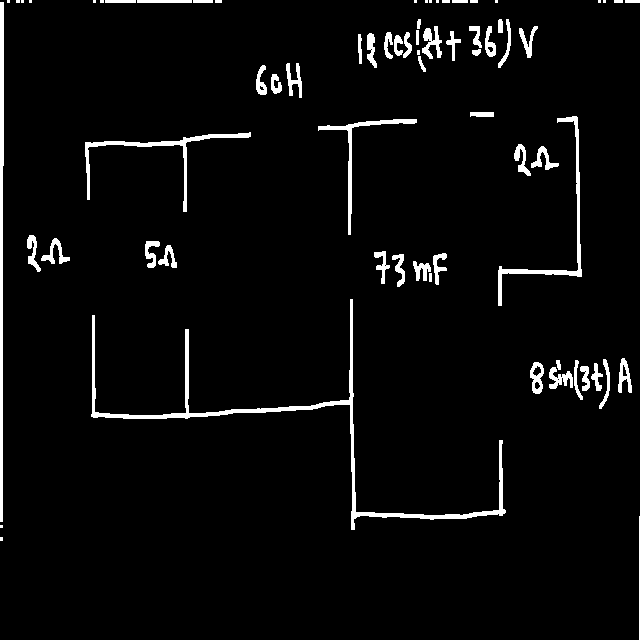 12 cos(2t + 36°) V
60H
2Ω
2Ω
5Ω
73 mF
8 sin(3t) A